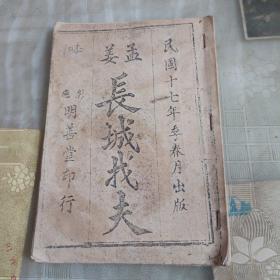 民國十七年季春月出版
孟姜
長城找夫
明善堂印行